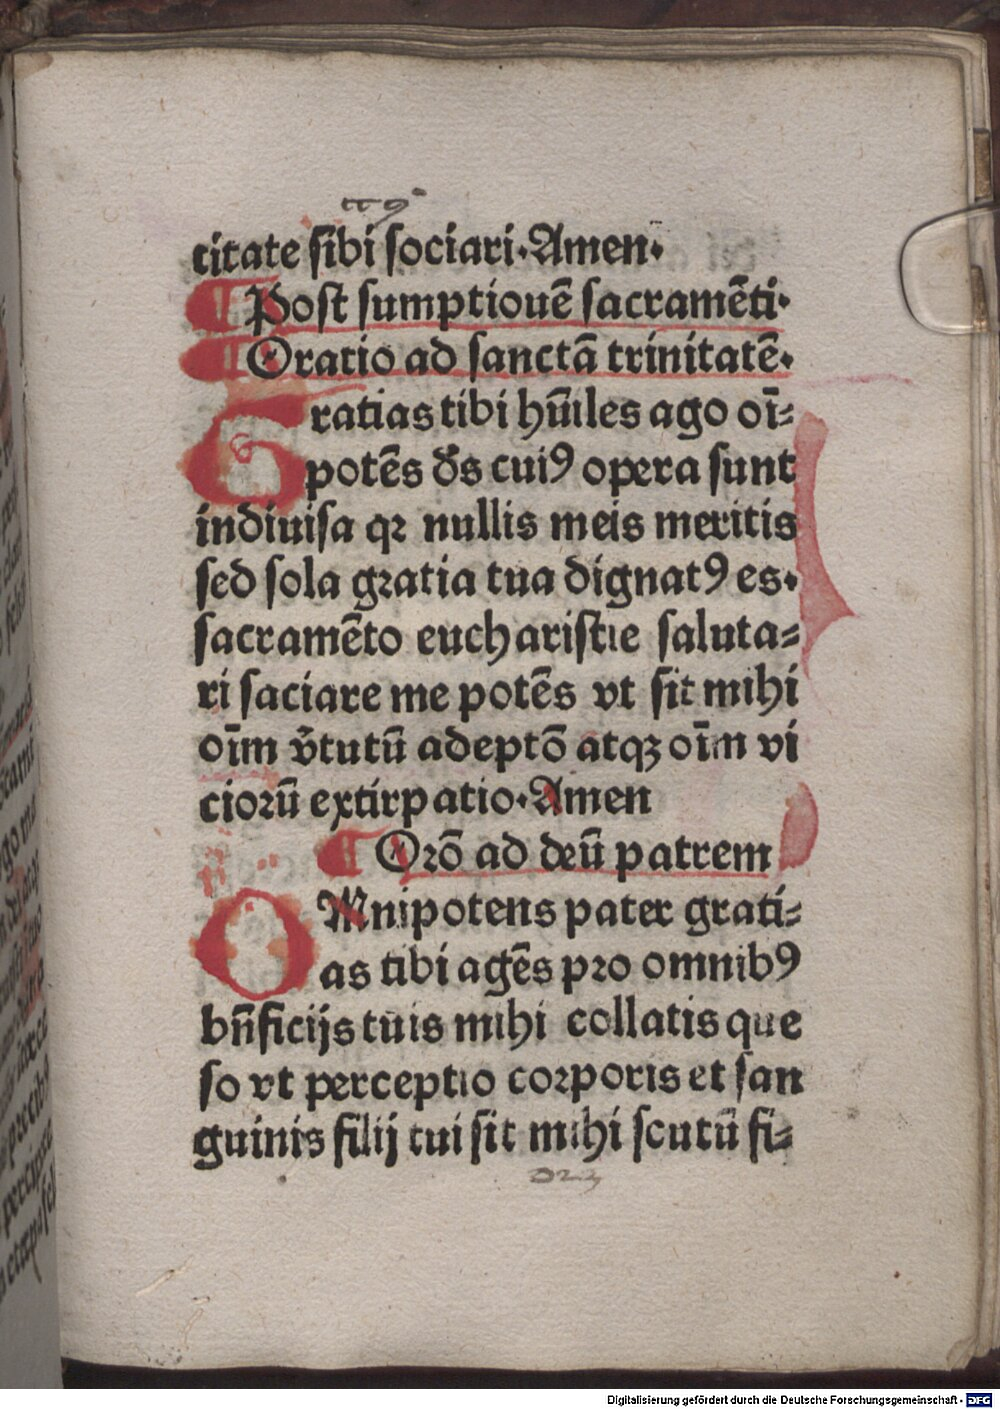 titate sibi sociari·Amen·
¶ Post sumptiouē sacramēti·
¶ Oratio ad sanctā trinitatē·
Gratias tibi hūiles ago oī⸗
potēs ds̄ cuiꝰ opera sunt
indiuisa qꝛ nullis meis meritis
sed sola gratia tua dignatꝰ es·
sacramēto eucharistie saluta⸗
ri saciare me potēs vt sit mihi
oīm v̄tutū adeptō atqꝫ oīm vi
ciorū extirpatio·Amen
¶ Orō ad deū patrem
OMnipotens pater grati⸗
as tibi agēs pro omnibꝰ
bn̄ficijs tuis mihi collatis que
so vt perceptio corporis et san
guinis filij tui sit mihi scutū fi⸗
Digitalisierung gefördert durch die Deutsche Forschungsgemeinschaft - DFG